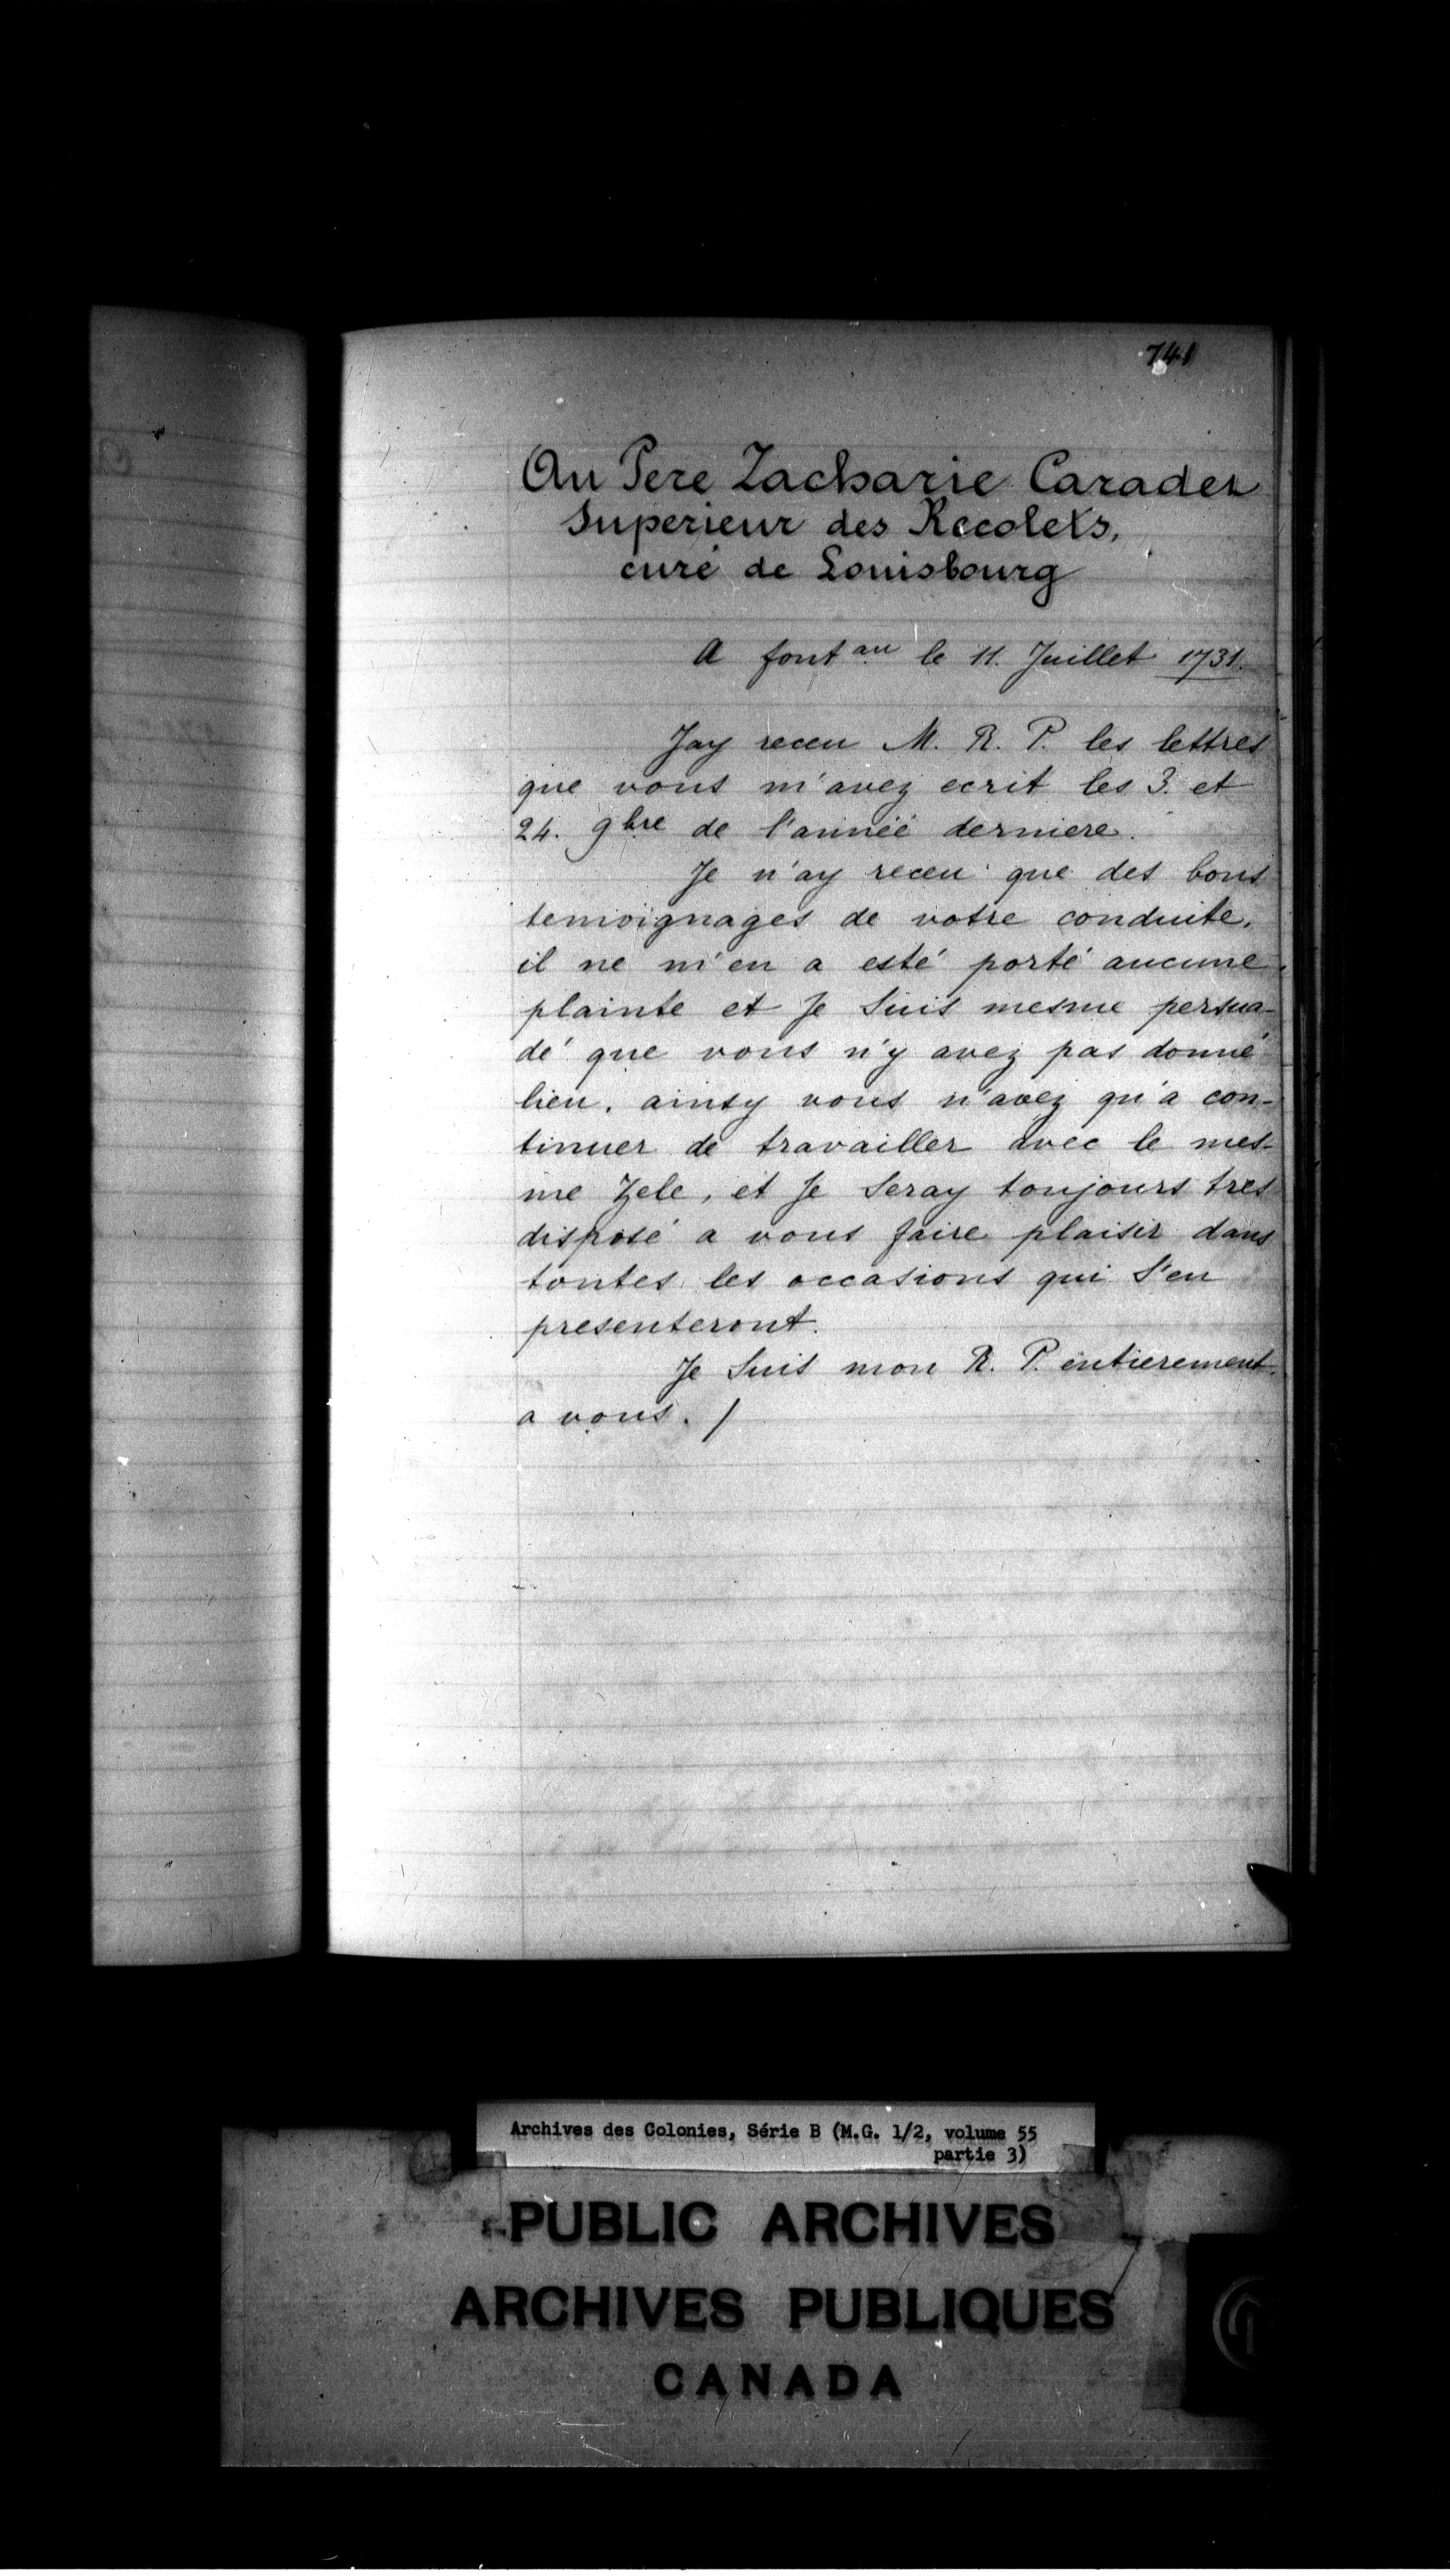 741
Au Pere Zacharie Caradez
Superieur des Recolets,
curé de Louisbourg
A font.au le 11. Juillet 1731.
Jay receu M. R. P. les lettres
que vous m'avez ecrit les 3. et
24. 9bre de l'année derniere.
Je n'ay receu que des bons
temoignages de votre conduite,
il ne m'en a esté porté aucune
plainte et Je Suis mesme persua-
dé que vous n'y avez pas donné
lieu. ainsy vous n'avez qu'a con-
tinuer de travailler avec le mes-
me Zele, et Je Seray toujours tres
disposé a vous faire plaisir dans
toutes les occasions qui S'en
presenteront.
Je Suis mon R. P. entierement
a vous. /
Archives des Colonies, Série B (M.G. 1/2, volume 55
partie 3)
PUBLIC ARCHIVES
ARCHIVES PUBLIQUES
CANADA